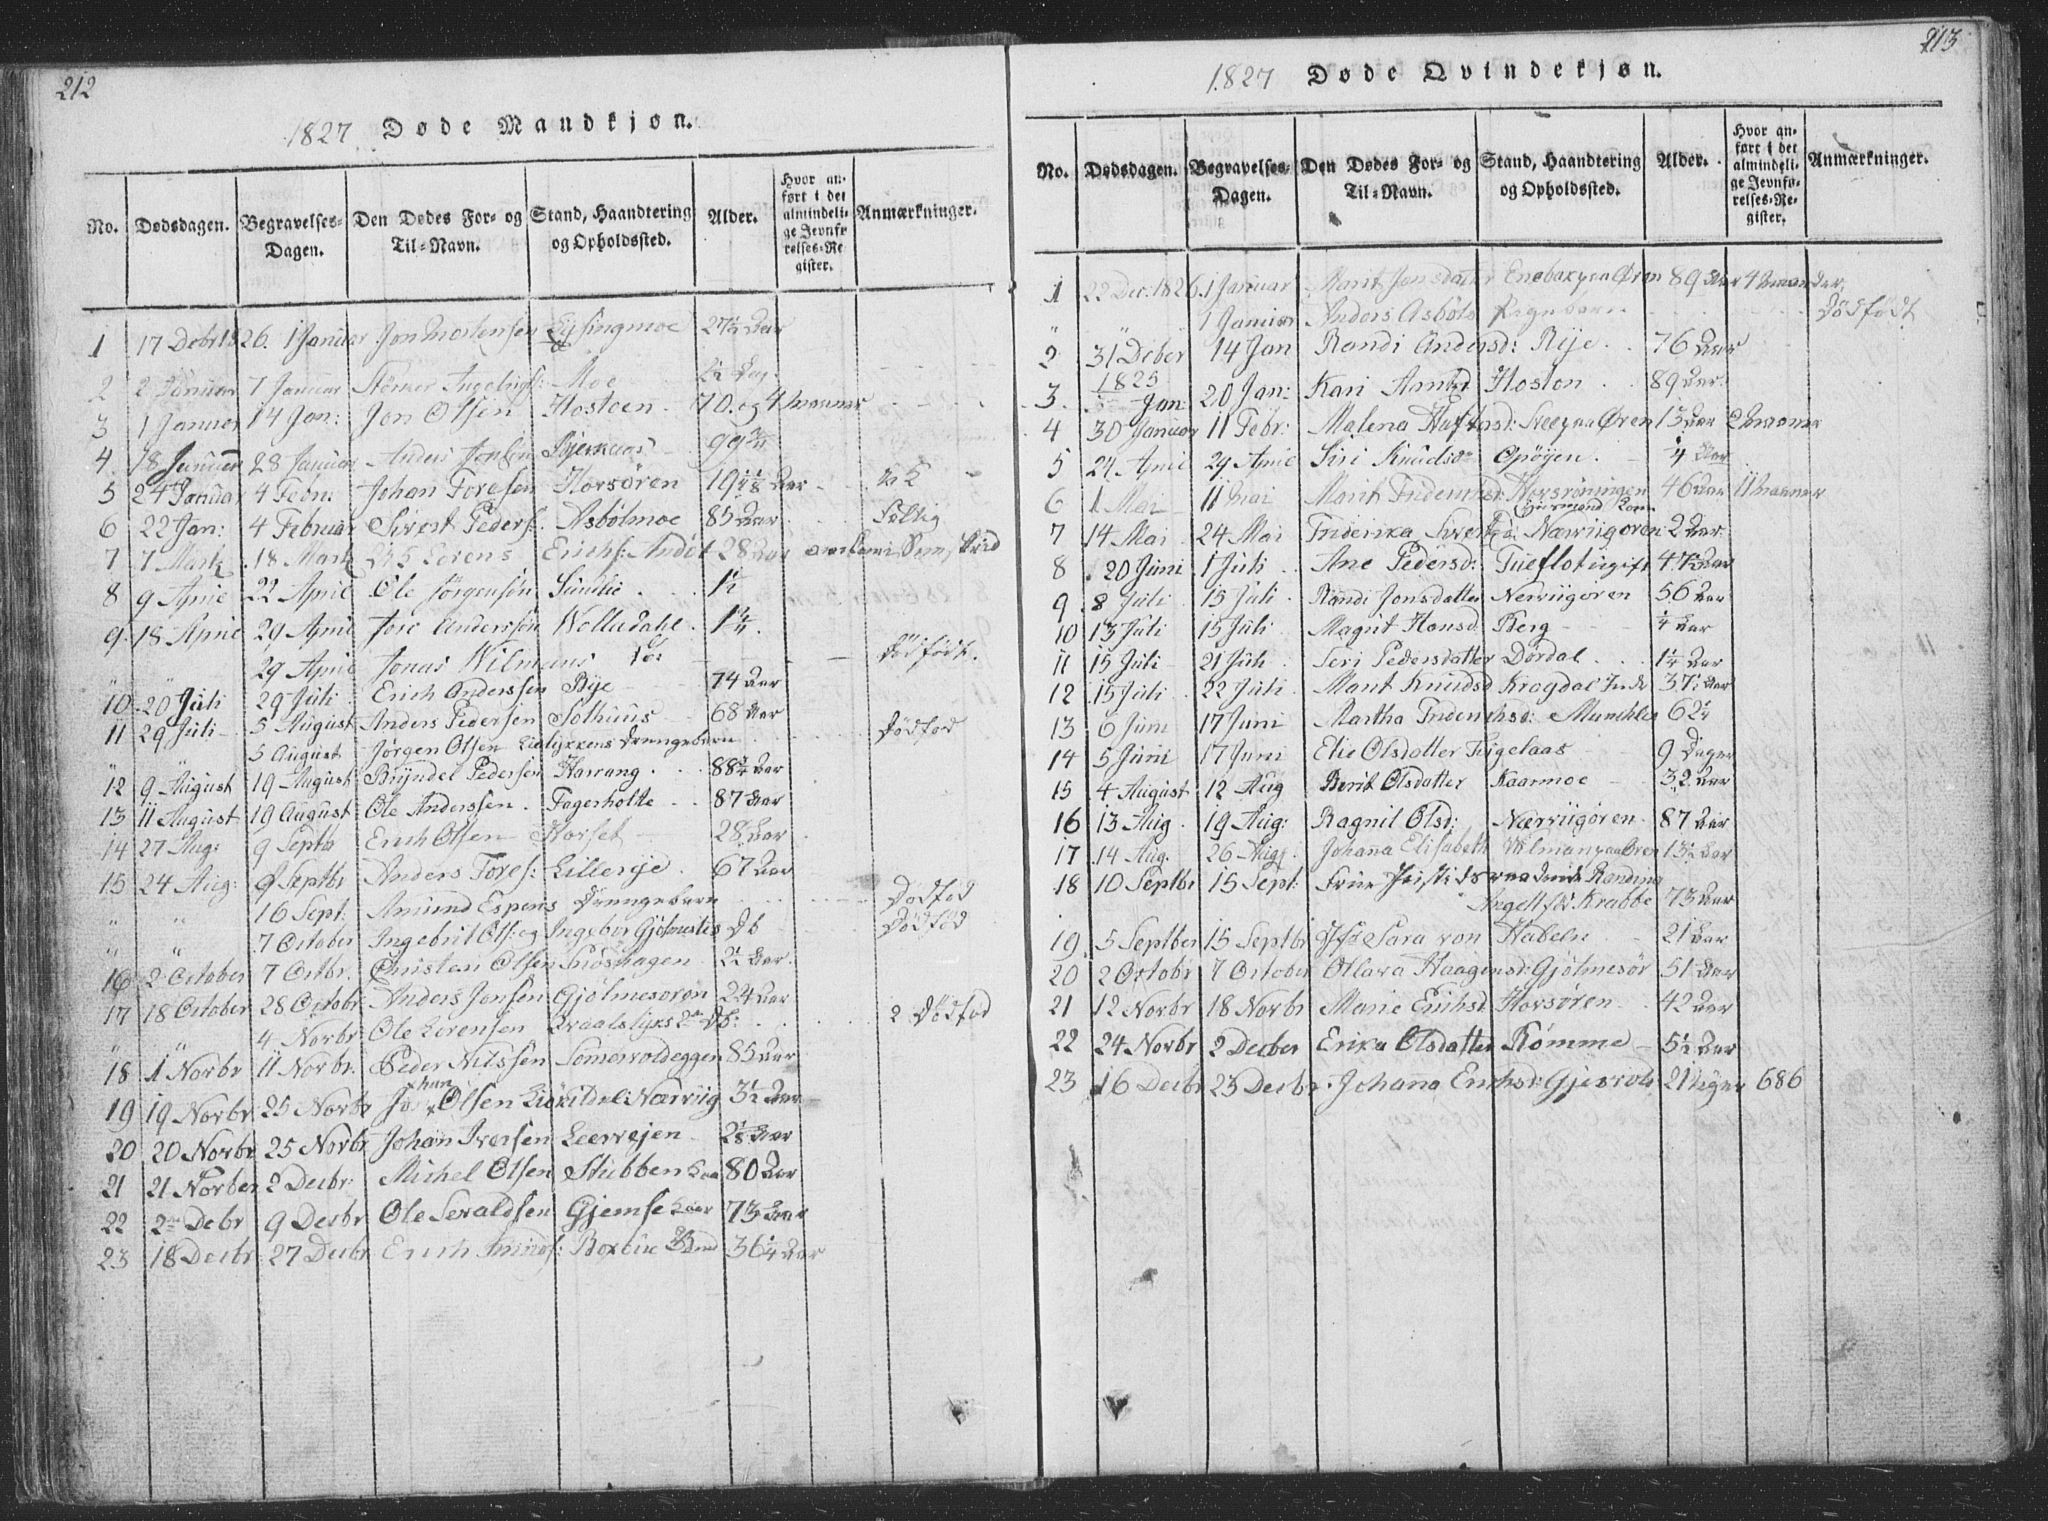 212
1827 Døde Mandkjøn.
No. Dødsdagen. Begravelses-Dagen. Den Dødes For- og Til-Navn. Stand, Haandtering og Opholdssted. Alder. Hvor anført i det almindelige Jevnførelses-Register. Anmærkninger.
1 17 Debr 1826. 1 Januar Jon Mortensen 27½ Aar
2 2 Januar 7 Januar Størker Moe
3 1 Januar 14 Jan: Jon Olsen Hostoen 70. og 4 maaner
4. 18 Januar 28 Januar Anders Jonsen
5 24 Januar 4 Febr: Johan Toresen Horsøren 19 Aar
6 22 Jan: 4 Februar Sivert Peders: Asbølmoe 85 Aar
7 7 Marti 18 Marti Lorens Erichs: 28 Aar
8 9 April 22 April Ole Jørgensøn Sundlie 1½
9. 18 April 29 April Tore Anderssøn Wolludahl 1¼.
" " 29 April Jonas Wilmans Dødfødt.
10 20 Juli 29 Juli Erich Anderssen Rye 74 Aar
11 29 Juli 5 August Anders Pedersen Solhuus 68 Aar
5 August Jørgen Olsen Drengebarn Dødfød
12 9 August 19 August Bryndel Pedersen Harrang 88¼ Aar
13 11 August 19 August Ole Anderssen. Fagerholte 87 Aar
14 27 Aug: 9 Septbr Erich Olsen Horset 28 Aar
15 24 Aug: 9 Septbr Anders Tores: Lillerye. 67 Aar
" " 16 Sept: Amund Espens Drengebarn Dødfød
" " 7 October Ingebrit Ols: og Ingebor Gjølmeslis Db Dødfød
16 2 October 7 Octbr. Christen Olsen 2½ Aar.
17 18 October 28 Octobr Anders Jonsen Gjølmesøron 24 Aar
" " 4 Norbr Ole Lorensen 2de Db: 2 Dødfød
18 1 Norbr 11 Norbr. Peder Nilssen Somervoldeggen 85 Aar
19 19 Norbr 25 Norbr Johan Olsen Nærviig 3½ Aar
20 20 Norbr 25 Norbr Johan Iversen Leervejen 2⅛ Aar
21 21 Norber 2 Decbr: Michel Olsen Stubben 80 Aar
22 2 Debr 9 Decbr Ole Seraldsen Gjemse 73 Aar
23 18 Decbr: 27 Decbr Erich 36¼ Aar
213
1827 Døde Qvindekjøn.
No. Dødsdagen. Begravelses-Dagen. Den Dødes For- og Til-Navn. Stand, Haandtering og Opholdssted. Alder. Hvor anført i det almindelige Jevnførelses-Register. Anmærkninger.
1 22 Dec. 1826 1 Januar Marit Jonsdatter paa Øren 89 Aar 4 maaneder
" " 1 Januar Anders Asbøls Pigebarn Dødfødt
2 31 Deber 14 Jan Randi Andersd: Rije 76 Aar
1825
3. Jan 20 Jan: Kari Hoston 89 Aar.
4 30 Januar 11 Febr: Malena paa Øren 13 Aar 2 maaner
5 24 April 29 April Siri Knudsdr Opøyen. ¼ Aar
6 1 Mai 11 mai Marit 46 Aar 11 maaner
7 14 Mai 24 Mai Friderika Nærviigoren 2 Aar
8 20 Juni 1 Juli Ane Pedersd: 47 Aar
9 8 Juli 15 Juli Randi Jonsdatter Nerviigoren 56 Aar
10 13 Juli 15 Juli Magrit Hansd Berg ¼ Aar
11 15 Juli 21 Juli Seri Pedersdatter Dørdal 1¼ Aar
12 15 Juli 22 Juli Marit Knudsd Krogdal 37½ Aar
13 6 Juni 17 Juni Martha 62¼
14 5 Juni 17 Juni Elie Olsdatter 9 Dager
15 4 August 12 Aug Berit Olsdatter Kaarmoe 32 Aar
16 13 Aug. 19 Aug: Ragnil Olsd: Nærviigøren. 87 Aar
17 14 Aug. 26 Aug. Johanna Elisabeth paa Øren 13½ Aar
18 10 Septbr 15 Sept: Frue
Krabbe 73 Aar
19. 5 Septber 15 Septbr Sara von Habeln 21 Aar
20 2 Octobr 7 October Ollava Haagensd: Gjølmesør 51 Aar
21 12 Norbr 18 Norbr Marie Erichsd Horsøren 42 Aar
22 24 Norbr 2 Decber Erika Olsdatter Rømme 5½ Aar
23 16 Decbr 23 Decbr. Johanna Erichsd: 21 Dager 686